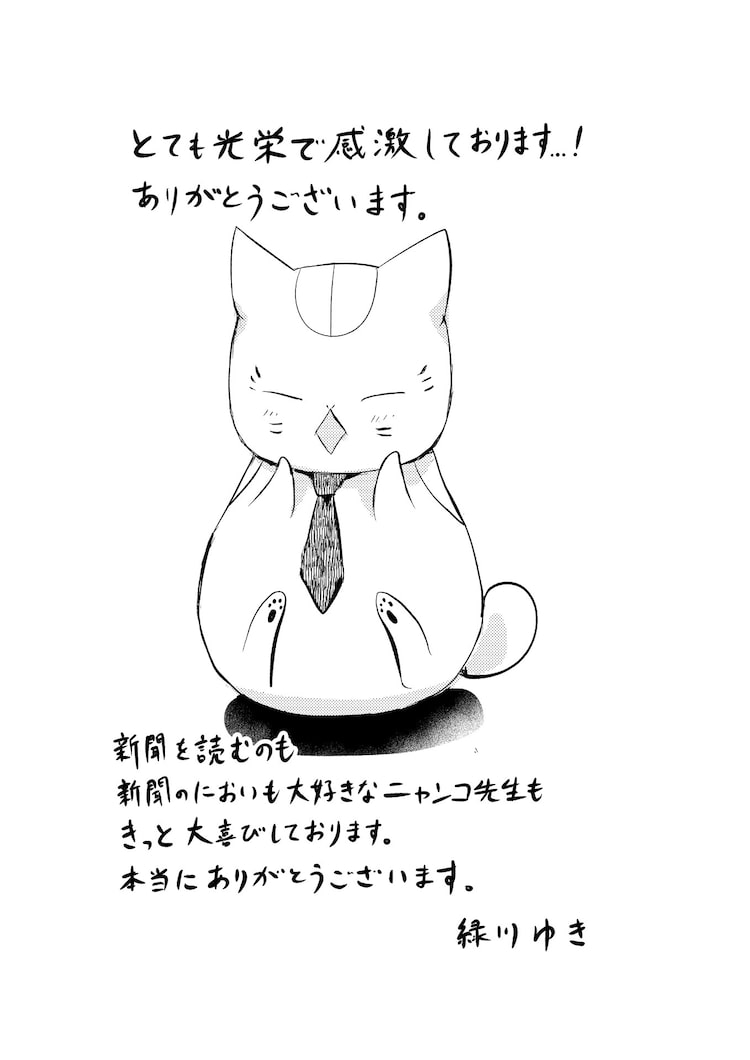 とても光栄で感激しております…!
ありがとうございます。
新聞を読むのも
新聞のにおいも大好きなニャンコ先生も
きっと大喜びしております。
本当にありがとうございます。
緑川ゆき